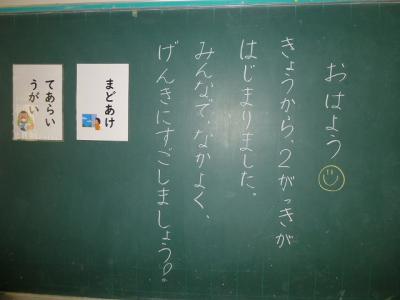 おはよう
きょうから、2がっきが
はじまりました。
みんなで、なかよく、
げんきにすごしましょう。
まどあけ
てあらい
うがい